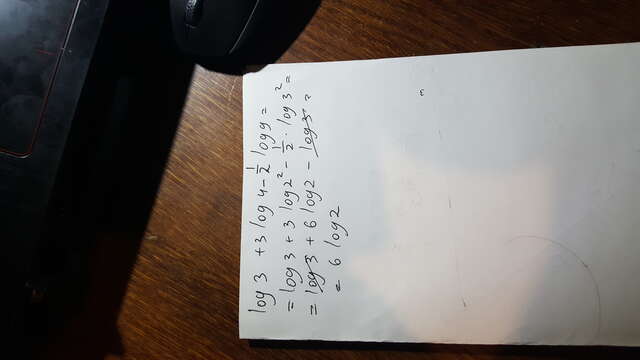 log 3 + 3 log 4 - 1/2 log 9 =
= log 3 + 3 log 2² - 1/2 · log 3² =
= log 3 + 6 log 2 - log 3 =
= 6 log 2